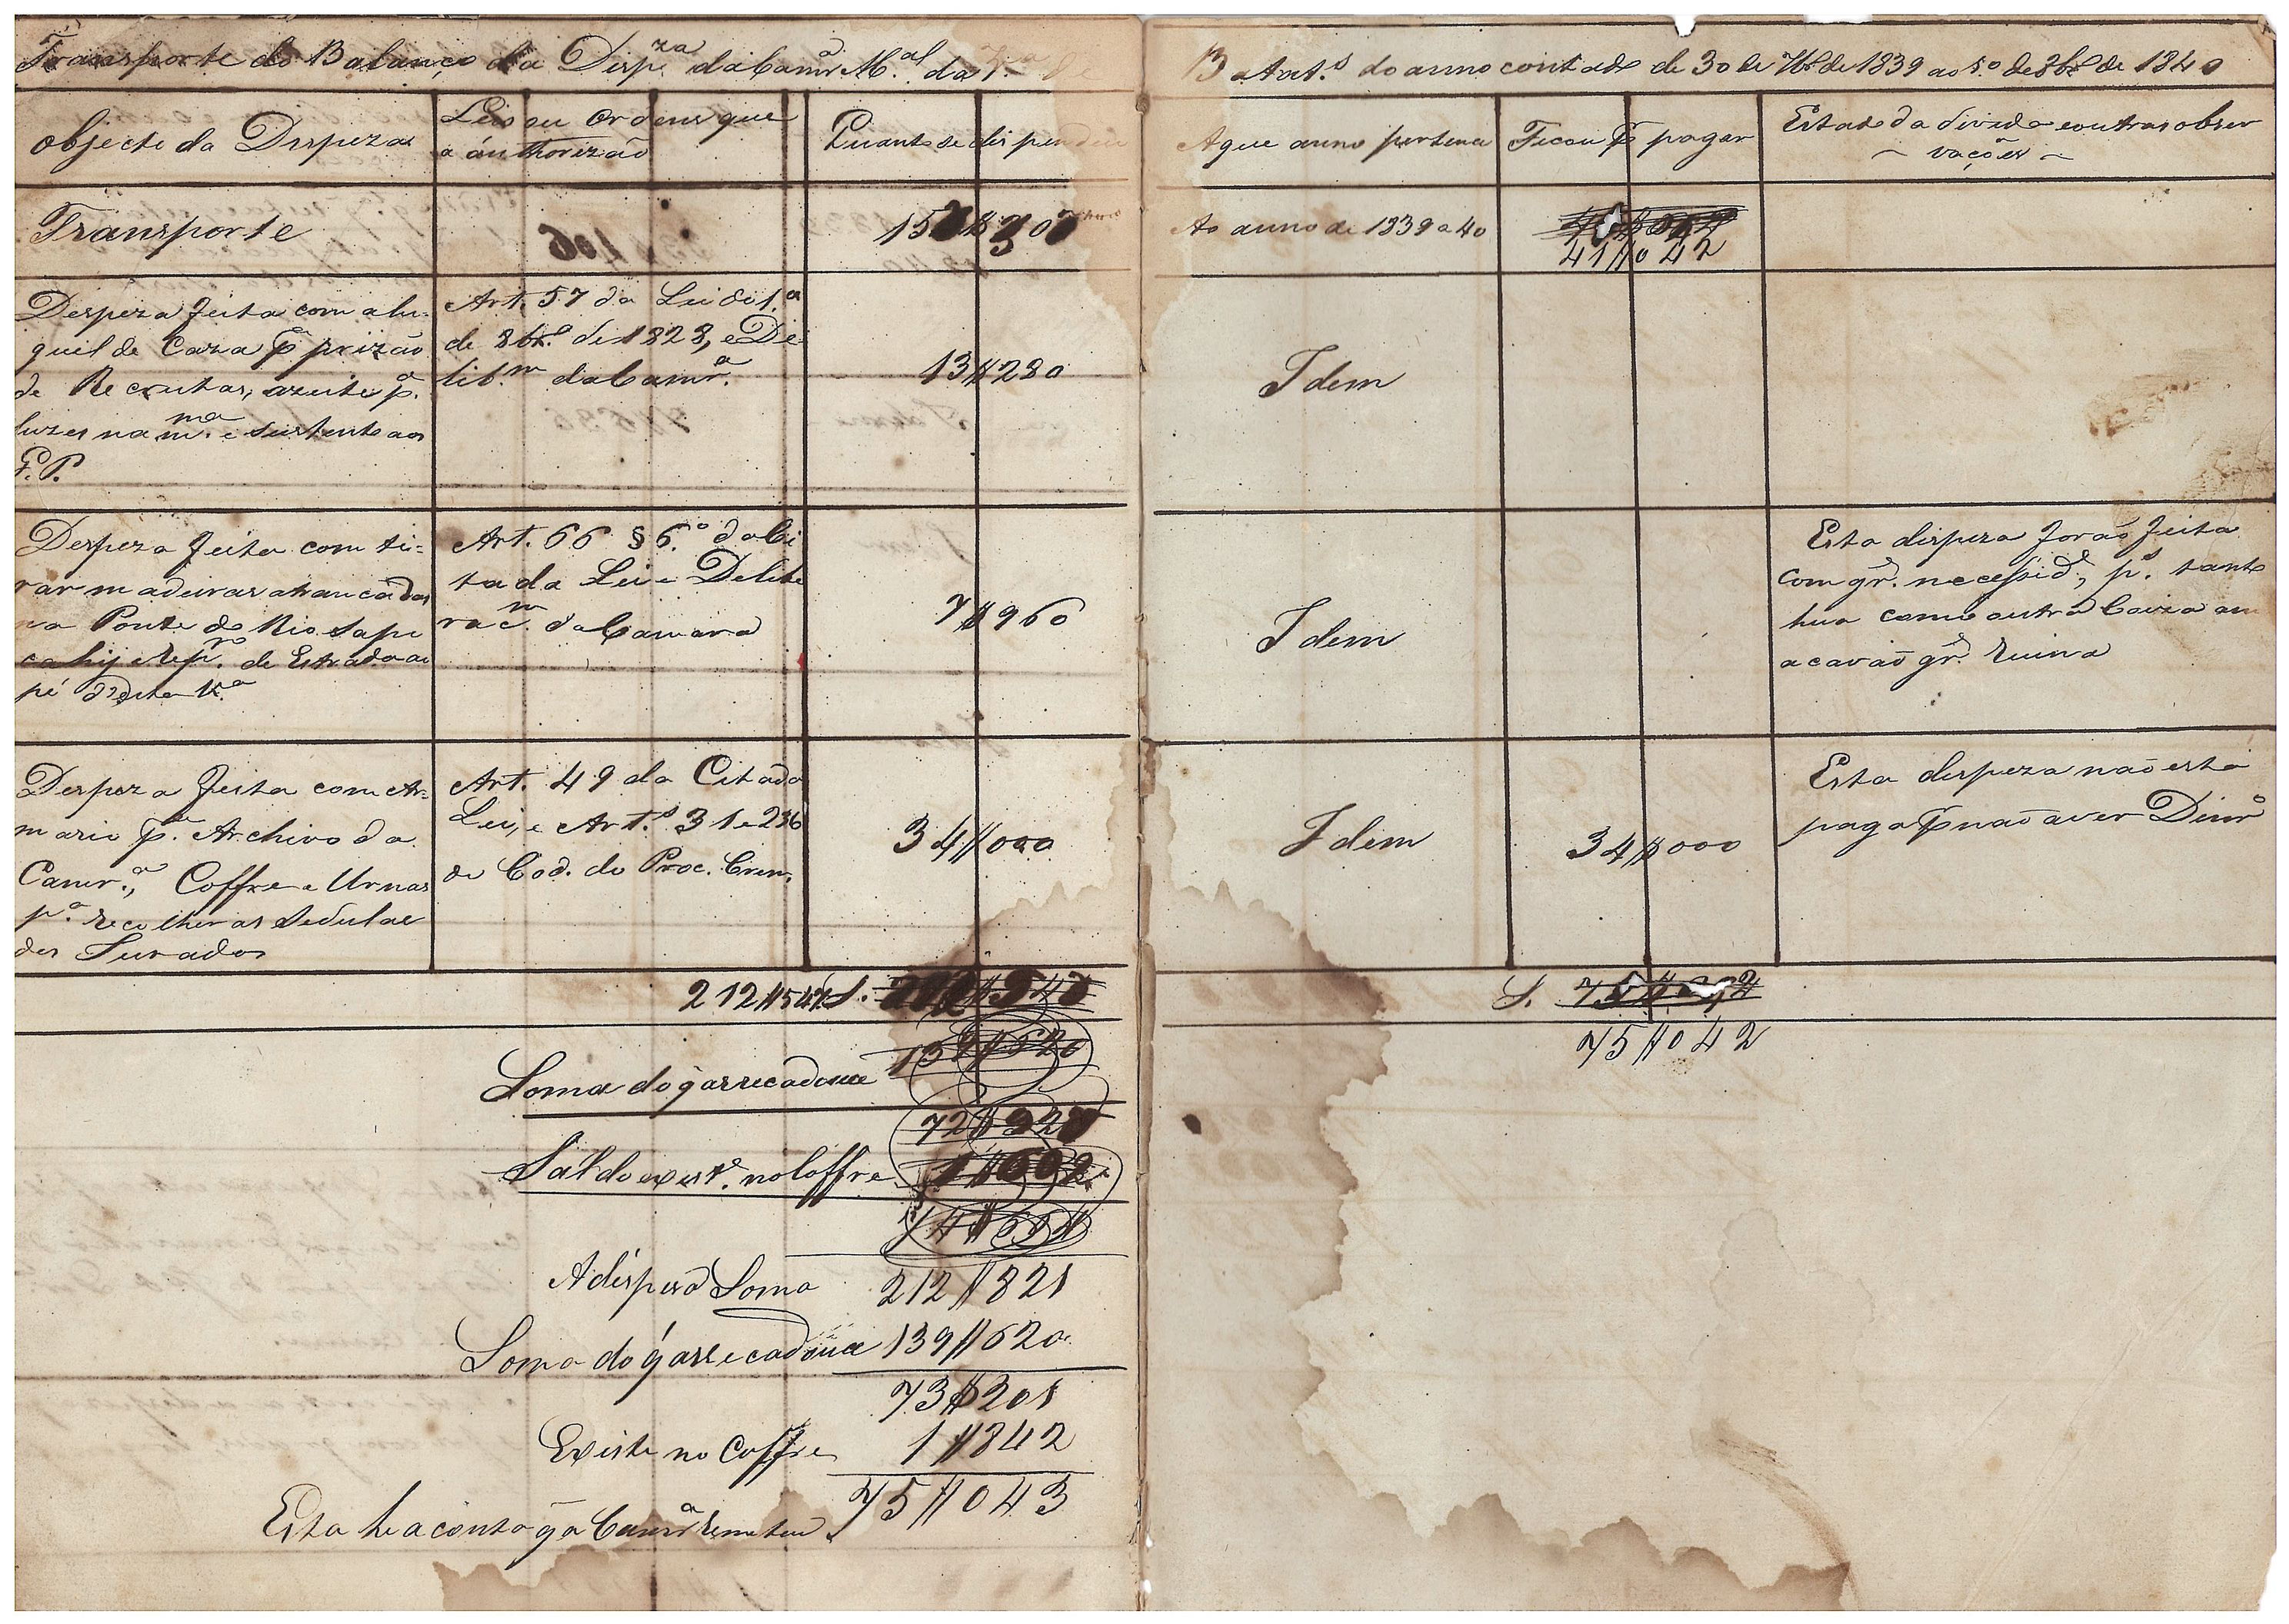 Transporte do Balanço da Disp.za da Camr.a M.al da V.a
B atat.s do anno contado de 30 de 7br.o de 1839 ao 1.o de 8br.o de 1840
objecto da Despeza
Leis ou Ordens que
a áuthorizão
Quanto se dispendeu
A que anno pertence
Ficou p.r pagar
Estado da divida e outras obser
~ vações ~
Transporte
Ao anno de 1839 a 40
41$042
Despeza feita com alu-
guel de Caza p.a prizão
de Recrutas, azeite p.a
luzes na m.ma e sustento aos
P.P.
Art. 57 da Lei do 1.o
de 8br.o de 1828, e De
lib.m da Camr.a
13$280
Idem
Despeza feita com ti=
rar madeiras atrancadas
na Ponte do Rio Sapu
cahij e Rep.ro de Estrada ao
pé d'dita V.a
Art. 66 § 6.o da Ci
tada Lei e Delibe
rac.m da Camara
7$960
Idem
Esta dispeza forão feita
com gr.e necessid.e, p.s tanto
hua como outra Couza am
açavão gr.e ruina
Despeza feita com Ar-
mario p.a Archivo da
Camr.a, Coffre e Urnas
p.a recolher as Sedulas
dos Jurados
Art. 49 da Citada
Lei, e Art.s 31 e 236
do Cod. do Proc. Crim.
34$000
Idem
34$000
Esta dispeza não está
paga p.r não aver Dinr.o
212$547 S.
S.
75$042
Soma do q̃ arrecadou se
Saldo exist.e no Coffre
A dispeza Soma 212$821
Soma do q̃ arrecadou se 139$620
73$201
Existe no Coffre 1$842
75$043
Esta he a conta q̃ a Camr.a remeteu